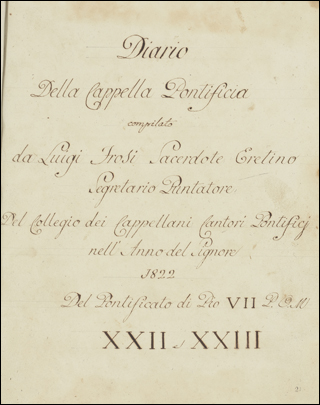 Diario
Della Cappella Pontificia
compilato
da Luigi Frosi Sacerdote Eretino
Segretario Puntatore
Del Collegio dei Cappellani Cantori Pontificj
nell' Anno del Signore
1822
Del Pontificato di Pio VII P. O. M
XXII al XXIII